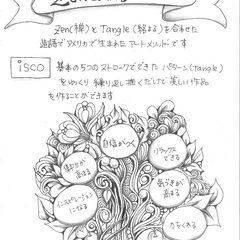 Zen(禅)とTangle(絡まる)を合わせた
造語でアメリカで生まれたアートメソッドです
isco
基本の5つのストロークでできた パターン(tangle)
をゆっくり 繰り返し描くだけで 美しい作品
を作ることができます
自信がつく
リラックス
できる
集中力が
高まる
気づきが
高まる
インスピレーション
になる